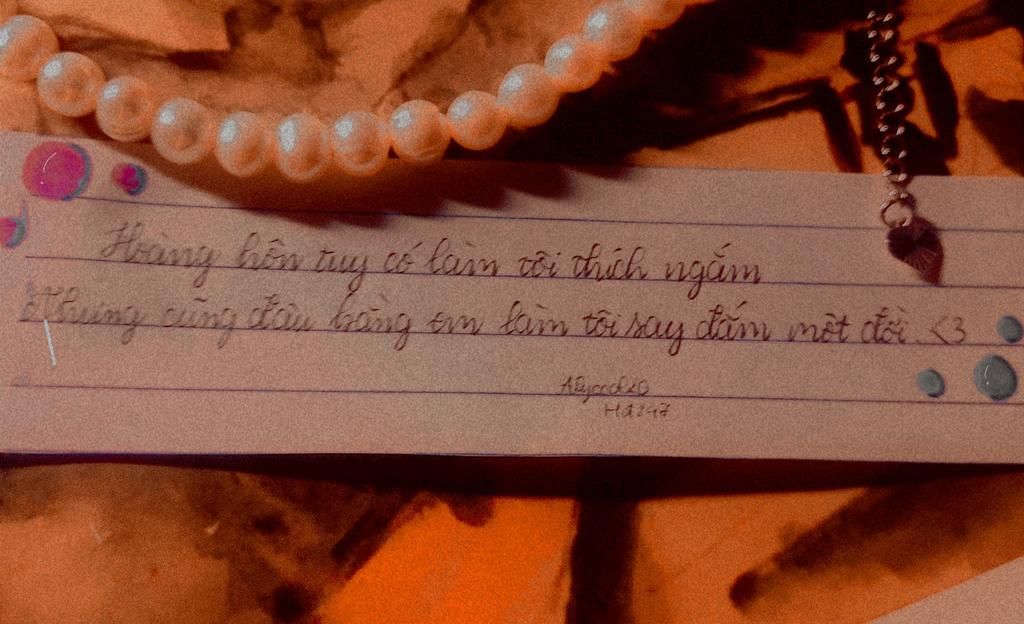 Hoàng hôn tuy có làm tôi thích ngắm
Nhưng cũng đâu bằng em làm tôi say đắm một đời <3